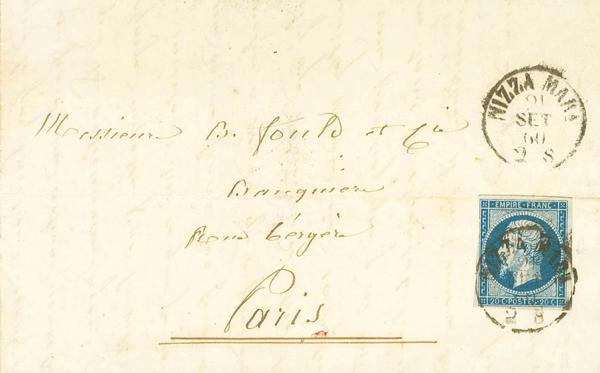 NIZZA MAR.
21
SET
60
2 S
Messieurs B. Fould et Cie
Banquiers
Rue Bergère
Paris
EMPIRE FRANC.
20 C POSTES 20 C
2 8